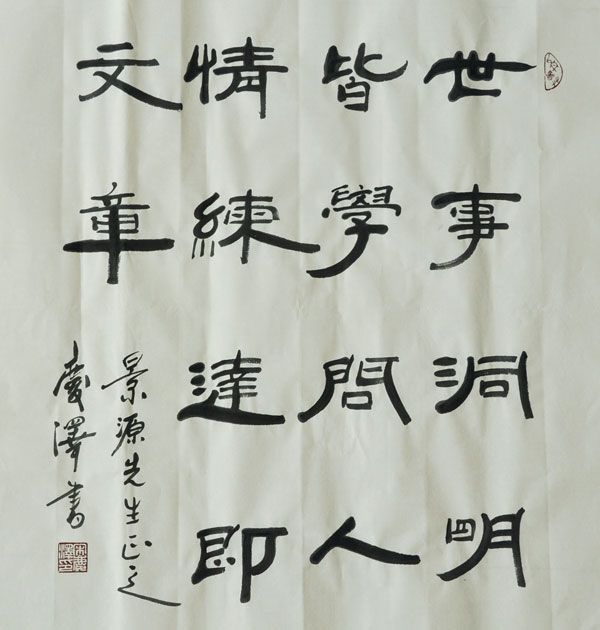 世事洞明
皆學問人
情練達即
文章
景源先生正之
慶澤書